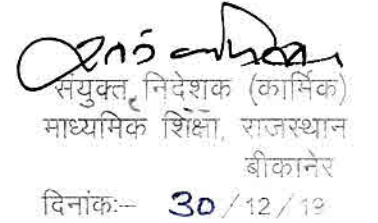 संयुक्त निदेशक (कार्मिक)
माध्यमिक शिक्षा, राजस्थान
बीकानेर
दिनांक:- 30/12/19